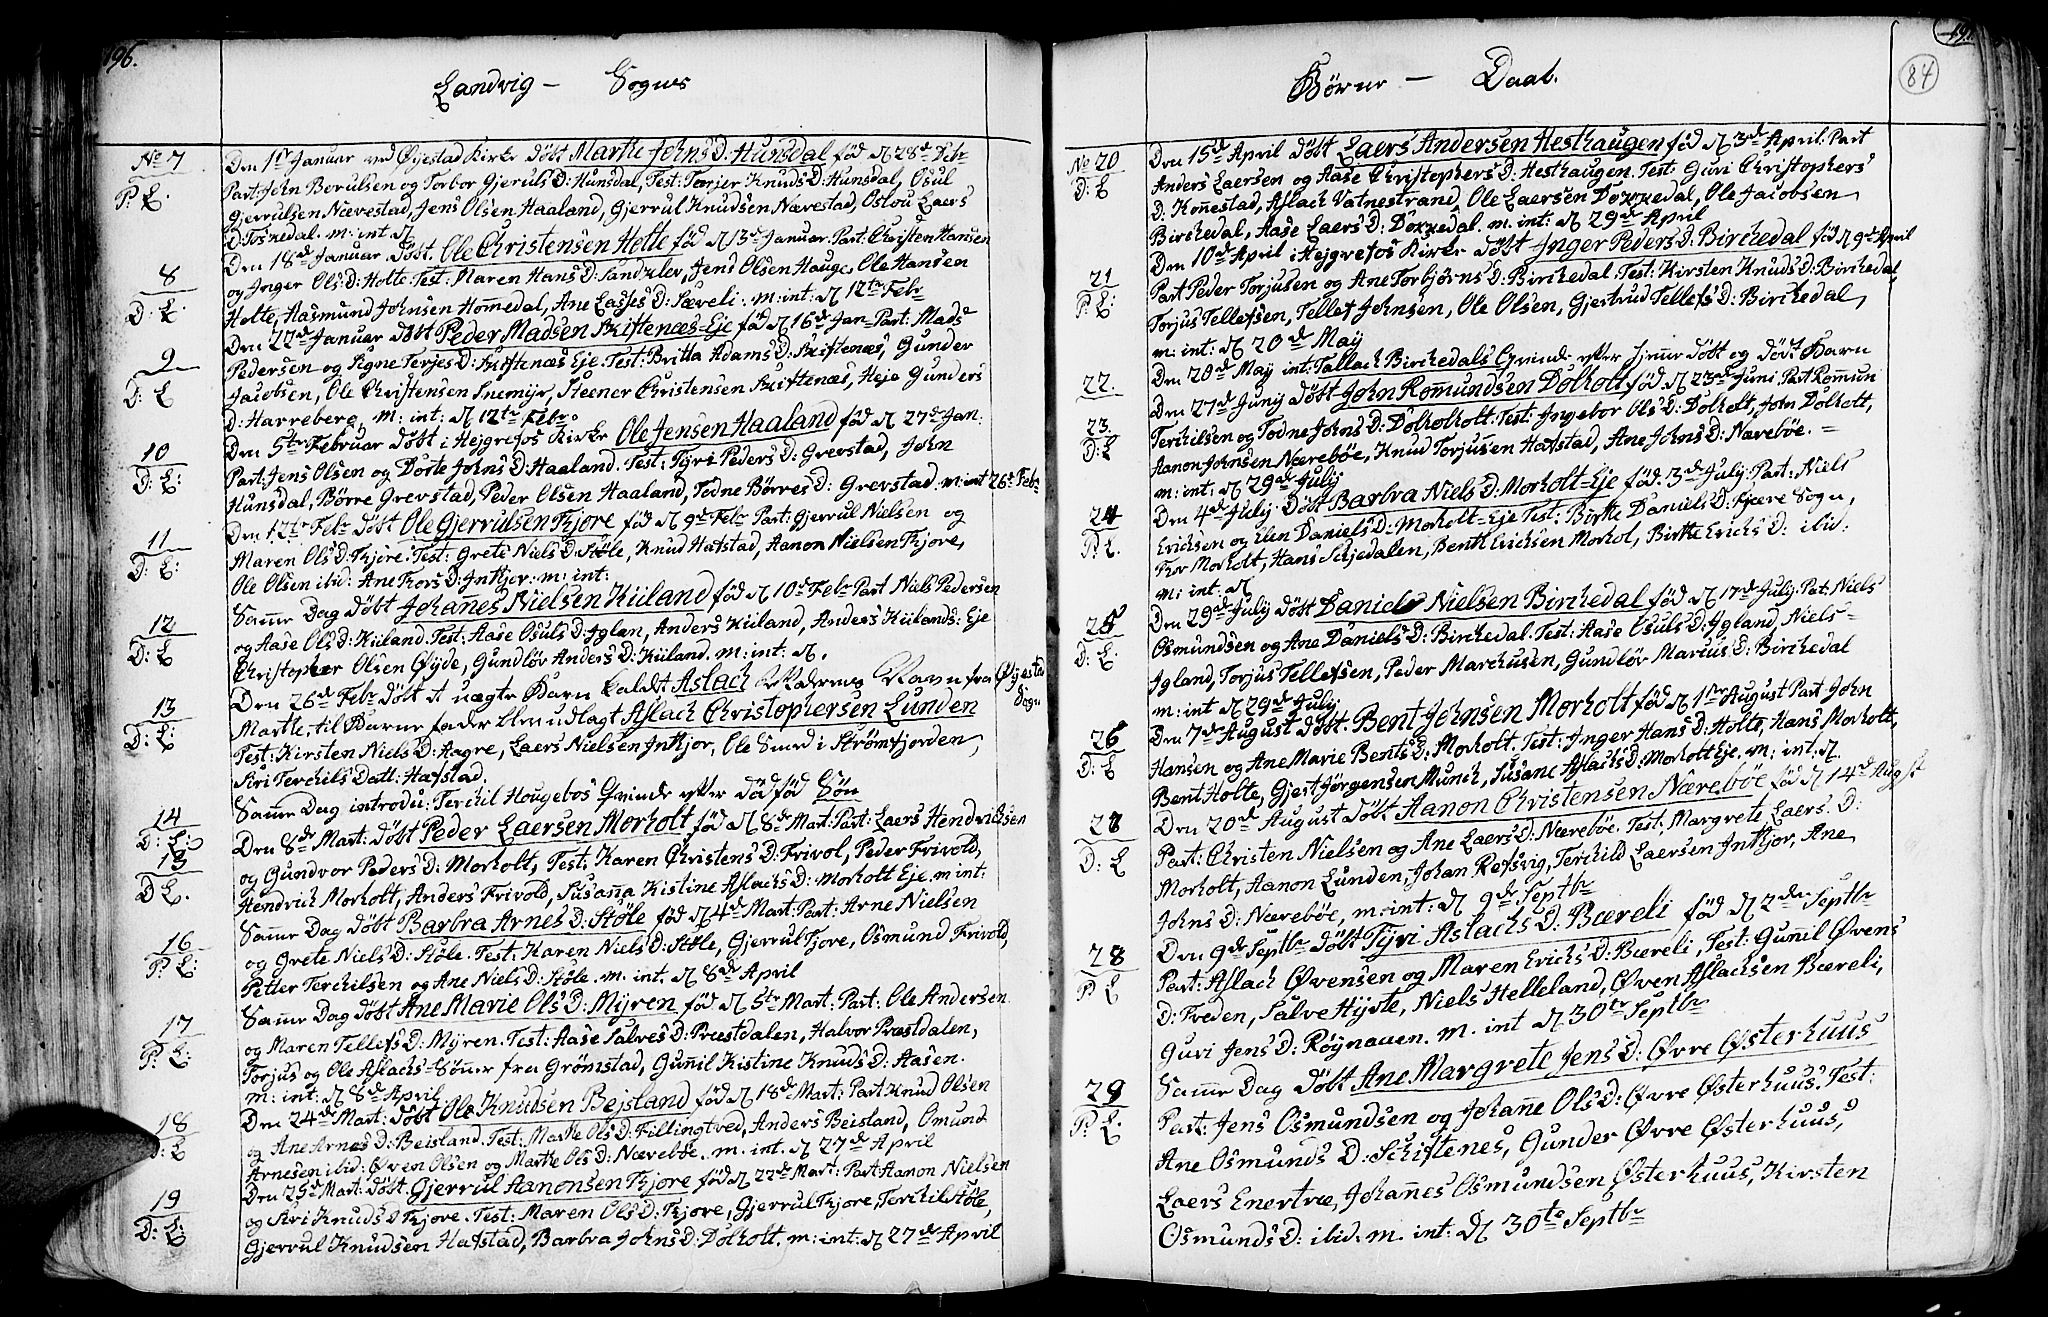 196.
Landvig — Sogns
No 7
P: L.
Den 1ste Januar ved Øyestad Kirke döbt Marthe Johns D: Hunsdal föd d 28de Debr
Part: John Borulsen og Torbor Gjeruls D: Hunsdal, Test: Torjer Knuds D: Hunsdal, Osul
Gjerrulsen Nævestad, Jens Olsen Haaland, Gjerrul Knudsen Nævestad, Oslou Laers
D: Toskedal. m: int d
8
D: L.
Den 18de Januar döbt. Ole Christensen Holte föd d 13de Januar. Part: Christen Hansen
og Inger Ols D: Holte Test: Maren Hans D: Landklev, Jens Olsen Hauge, Ole Hansen
Holte, Aasmund Johnsen Homedal, Ane Lasses D: Sæveli. m: int. d 12te Febr
9
D: L
Den 22de Januar döbt Peder Madsen Skiftenæs-Eje föd d 16de Jan- Part: Mads
Pedersen og Signe Terjes D: Skiftenæs Eje. Test: Britta Adams D: Skiftenæs, Gunder
Jacobsen, Ole Christensen Snemijr, Steener Christensen Skiftenæs, Heje Gunders
D: Harreberg, m: int: d 12te Febr.
10
D: L:
Den 5te Februar döbt i Hejgrefos Kirke Ole Jensen Haaland föd d 27de Jan:
Part: Jens Olsen og Dorte Johns D: Haaland. Test: Tyri Peders D: Grevstad, John
Hunsdal, Börre Grevstad, Peder Olsen Haaland, Todne Börres D: Grevstad. m: int 26de Febr
11
D: L:
Den 12te Febr döbt Ole Gjerrulsen Kjore föd d 9de Febr Part: Gjerrul Nielsen og
Maren Ols D: Kjore. Test: Grete Niels D: Støle, Knud Hafstad, Aanon Nielsen Kjore,
Ole Olsen ibid: Ane Thors D: Intkjor. m: int:
12
D: L
Samme Dag döbt Johannes Nielsen Kiiland föd d 10de Febr Part Niels Pedersen
og Aase Ols D: Kiiland. Test: Aase Osuls D: Iglan, Anders Kiiland, Anders Kiilands: Eje
Christopher Olsen Øyde, Gundlöv Anders D: Kiiland. m: int: d.
13
D: L:
Den 26de Febr döbt et uægte Barn kaldt Aslach Moderens Navn fra Øyestad Sogn
Marthe, til Barne fader blev udlagt Aslach Christophersen Lunden
Test: Kirsten Niels D: Aagre, Laers Nielsen Intkjor, Ole Smed i Strömfjorden,
Siri Terchils Datt: Hafstad.
Samme Dag introdu: Terchil Hougebos Qvinde efter död föd Sön
14
D: L:
Den 8de Mart: döbt Peder Laersen Morholt föd d 8de Mart: Part: Laers Hendrichsen
15
D L.
og Gundvor Peders D: Morholt, Test: Karen Christens D: Frivol, Peder Frivold,
Hendrich Morholt, Anders Frivold, Susanna Kistine Aslachs D: Morholt Eje. m int:
16
P: L:
Samme Dag döbt Barbra Arnes D: Støle föd d 4de Mart: Part: Arne Nielsen
og Grete Niels D: Støle. Test: Karen Niels D: Støle, Gjerrul Tjore, Osmund Frivold,
Petter Terchilsen og Ane Niels D: Støle. m. int. d 8de April
17
P: L:
Samme Dag döbt Ane Marie Ols D: Myren föd d 5te Mart: Part: Ole Andersen
og Maren Tellefs D: Myren. Test: Aase Salves D: Præstdalen, Halvor Præstdalen,
Torjus og Ole Aslachs-Sønner fra Grömstad, Gunnil Kistine Knuds D: Aasen.
m: int: d 8de April
18
D: L
Den 24de Mart: döbt Ole Knudsen Bejsland föd d 18de Mart: Part: Knud Olsen
og Ane Arnes D: Beisland. Test: Marthe Ols D: Fillingtved, Anders Beisland, Omund
Arnesen ibid: Øven Olsen og Marthe Ols D: Nærebøe. m. int. d 27de April
19
D: L:
Den 25de Mart: döbt Gjerrul Aanonsen Kjore föd d 22de Mart: Part: Aanon Nielsen
og Siri Knuds D Kjore. Test: Maren Ols D: Kjore, Gjerrul Kjore, Terchil Støle,
Gjerrul Knudsen Hafstad, Barbra Johns D: Dolholt. m: int: d 27de April
84
Börne — Daab.
No 20
D: L
Den 15de April döbt Laers Andersen Hesthaugen föd d 3de April. Part
Anders Laersen og Aase Christophers D: Hesthaugen. Test: Guri Christophers
D: Konnestad, Aslach Vatnestrand, Ole Laersen Dokkedal, Ole Jacobsen
Birchedal, Aase Laers D: Dokkedal. m. int: d 29de April
21
P: L:
Den 10de April i Hejgrefos Kirke döbt Inger Peders D: Birchedal föd d 9de April
Part Peder Torjusen og Ane Torbjörns D: Birchedal. Test: Kirsten Knuds D: Birchedal,
Torjus Tellefsen, Tellef Johnsen, Ole Olsen, Gjertrud Tellefs D: Birchedal,
m: int: d 20de May
22.
Den 20de May int: Tallach Birchedals Qvinde efter hjemme döbt og död Barn
23.
D: L
Den 27de Junij döbt John Rommundsen Dolholt föd d 23de Juni Part Rommun
Terchilsen og Todne Johns D: Dolhoholt: Test: Ingebor Ols D: Dolholt, John Dolholt,
Aanon Johnsen Nærebøe, Knud Torjusen Hafstad, Ane Johns D: Nærebøe. =
m: int: d 29de Julij
24
P: L.
Den 4de Julij. Döbt Barbra Niels D: Morholt-Eje föd. 3de Julij: Part: Niels
Erichsen og Elen Daniels D: Morholt-Eje Test: Birthe Daniels D: Fjære Sogn,
Thor Morholt, Hans Schjedalen, Benth Erichsen Morhol, Birthe Erichs D: ibid:
m: int: d
25
D: L.
Den 29de Julij döbt Daniel Nielsen Birchedal föd d 17de Julij: Pat: Niels
Osmundsen og Ane Daniels D: Birchedal. Test: Aase Osuls D: Igland, Niels-
Igland, Torjus Tellefsen, Peder Marchusen, Gundlöv Marius D: Birchedal
m: int d 29de Julij
26
D: L
Den 7de August döbt. Bent Johnsen Morholt föd d 1ste August Part John
Hansen og Ane Marie Bents D: Morholt. Test: Inger Hans D: Holte, Hans Morholt,
Bent Holte, Gjert Jörgensen Munch, Susane Aslachs D: Morholt Eje. m: int. d.
27
D: L
Den 20de August döbt Aanon Christensen Nærebøe föd d 14de Augst
Part: Christen Nielsen og Ane Laers D: Nærebøe. Test: Margrete Laers D:
Morholt, Aanon Lunden, Johan Refsvig, Terchild Laersen Intkjor, Ane
Johns D: Nærebøe, m: int: d 9de Septbr
28
P L
Den 9de Septbr döbt Tyri Aslachs D: Bæreli föd d 2den Septbr
Part: Aslach Øvensen og Maren Erichs D: Bæreli, Test: Gunnil Øvens
D: Freden, Salve Hyste, Niels Helleland, Øven Aslachsen Bæreli,
Guri Jens D: Røynauen. m. int d 30te Septbr
29
P: L.
Samme Dag döbt Ane Margrete Jens D: Øvre Østerhuus
Part: Jens Osmundsen og Johanne Ols D: Øvre Østerhuus. Test:
Ane Osmunds D: Schiftenes, Gunder Øvre Østerhuus,
Laers Enertræ, Johannes Osmundsen Østerhuus, Kirsten
Osmunds D: ibid. m. int: d 30te Septbr